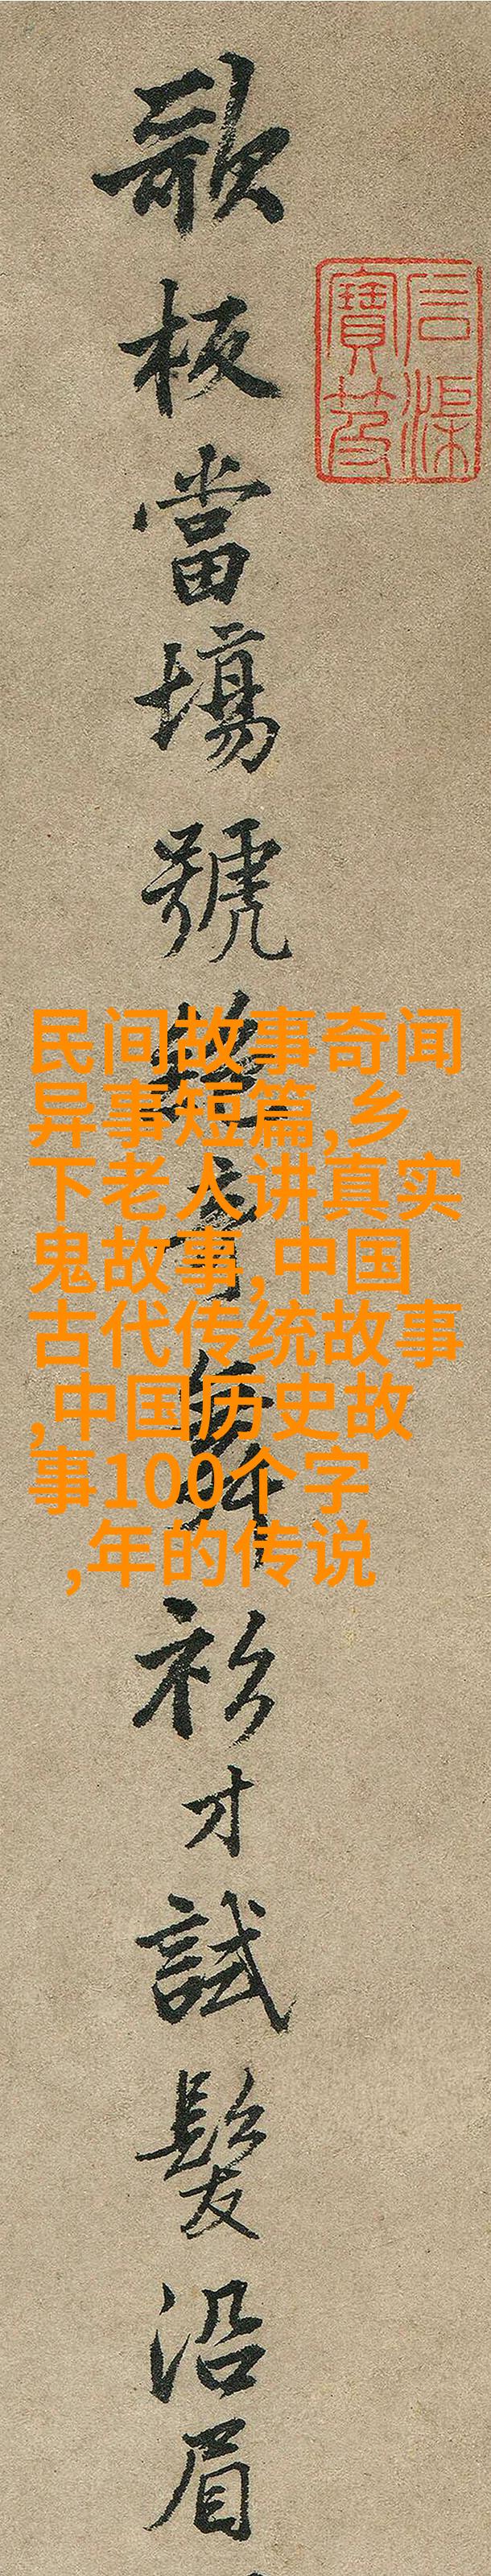 歌板當場號絕奇舞衫才試髮沿眉
石渠
寶笈
民间故事奇闻
异事短篇,乡
下老人讲真实
鬼故事,中国
古代传统故事
,中国历史故
事100个字
,年的传说